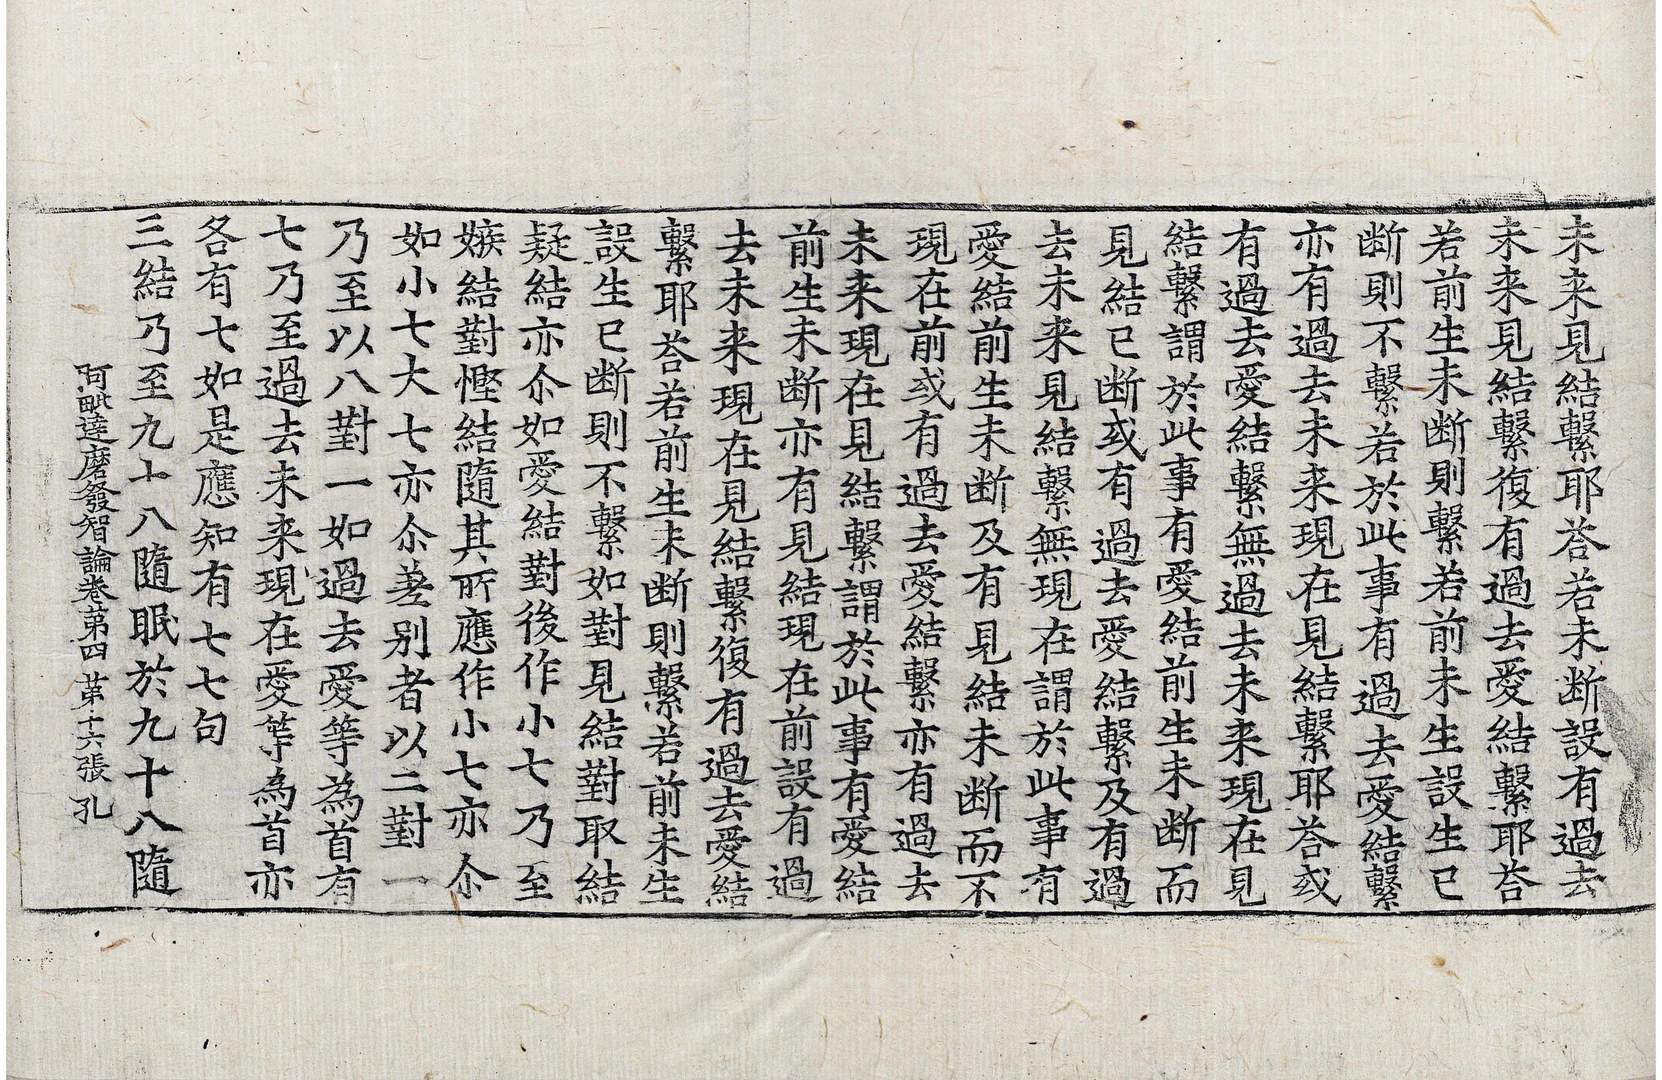 未来見結繫耶荅若未断設有過去
未来見結繫復有過去愛結繫耶荅
若前生未断則繫若前未生設生已
断則不繫若於此事有過去愛結繫
亦有過去未来現在見結繫耶荅或
有過去愛結繫無過去未来現在見
結繫謂於此事有愛結前生未断而
見結已断或有過去愛結繫及有過
去未来見結繫無現在謂於此事有
愛結前生未断及有見結未断而不
現在前或有過去愛結繫亦有過去
未来現在見結繫謂於此事有愛結
前生未断亦有見結現在前設有過
去未来現在見結繫復有過去愛結
繫耶荅若前生未断則繫若前未生
設生已断則不繫如對見結對取結
疑結亦尒如愛結對後作小七乃至
嫉結對慳結隨其所應作小七亦尒
如小七大七亦尒差别者以二對一
乃至以八對一如過去愛等為首有
七乃至過去未来現在愛等為首亦
各有七如是應知有七七句
三結乃至九十八隨眠於九十八隨
阿毗達磨發智論卷第四 苐十六張 孔